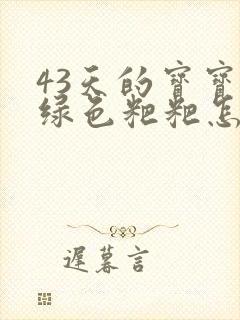 43天的宝宝
绿色粑粑怎
遲暮言